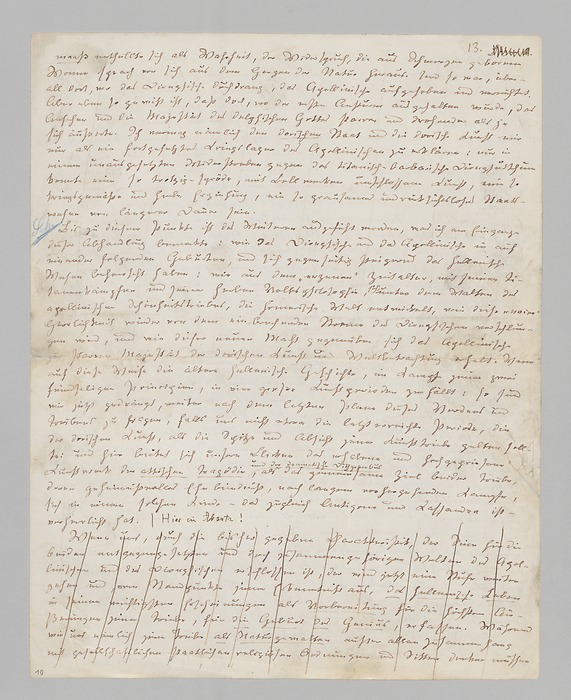 maaß enthüllte sich als Wahrheit, der Widerspruch, die aus Schmerzen geborene
Wonne sprach von sich aus dem Herzen der Natur heraus. Und so war, über-
all dort, wo das Dionysische durchdrang, das Apollinische aufgehoben und vernichtet.
Aber eben so gewiß ist, daß dort, wo der erste Ansturm ausgehalten wurde, das
Ansehen und die Majestät des delphischen Gottes starrer und drohender als je
sich äußerte. Ich vermag nämlich den dorischen Staat und die dorische Kunst mir
nur als ein fortgesetztes Kriegslager des Apollinischen zu erklären: nur in
einem unausgesetzten Widerstreben gegen das titanisch-barbarische
konnte eine so trotzig-spröde, mit Bollwerken umschlossene Kunst, eine so
kriegsgemäße und herbe Erziehung, ein so grausames und rücksichtsloses Staats-
wesen von längerer Dauer sein.
Bis zu diesem Punkte ist des Weiteren ausgeführt worden, was ich am Eingange
dieser Abhandlung bemerkte: wie das Dionysische und das Apollinische in auf
einander folgenden Geburten, und sich gegenseitig steigernd das hellenische
Wesen beherrscht haben: wie aus dem „erzenen" Zeitalter, mit seinen Ti-
tanenkämpfen und seiner herben Volksphilosophie, sich unter dem Walten des
apollinischen Schönheitstriebes, die homerische Welt entwickelt, wie diese „naive"
Herrlichkeit wieder von dem einbrechenden Strome des Dionysischen verschlun-
gen wird, und wie dieser neuen Macht gegenüber sich das Apollinische
zur starren Majestät der dorischen Kunst und Weltbetrachtung erhebt. Wenn
auf diese Weise die ältere hellenische Geschichte, im Kampf jener zwei
feindseligen Principien, in vier große Kunstperioden zerfällt: so sind
wir jetzt gedrängt, weiter nach dem letzten Plane dieses Werdens und
Treibens zu fragen, falls uns nicht etwa die letzterreichte Periode, die
der dorischen Kunst, als die Spitze und Absicht jener Kunsttriebe gelten soll-
te: und hier bietet sich unseren Blicken das erhabene und hochgepriesene
Kunstwerk der attischen Tragödie und des dramatischen Dithyrambus, als das gemeinsame Ziel beider Triebe,
deren geheimnißvolles Ehebündniß, nach langem vorhergehenden Kampfe,
sich in einem solchen Kinde – das zugleich Antigone und Kassandra ist –
verherrlicht hat. | Hier
Wem nun, durch die bisher gegebene
beiden entgegengesetzten und doch zusammengehörigen Welten des Apol-
linischen und des Dionysischen erschlossen ist, der wird jetzt eine Stufe weiter
gehen und vom Standpunkte jener Erkenntniß aus, das hellenische Leben
in seinen wichtigsten Erscheinungen als Vorbereitung für die höchsten Äu-
ßerungen jener Triebe, für die Geburt des Genius, erfassen. Während
wir uns nämlich jene Triebe als Naturgewalten außer allem Zusammenhang
mit gesellschaftlichen staatlichen religiösen Ordnungen und Sitten denken müssen
13.